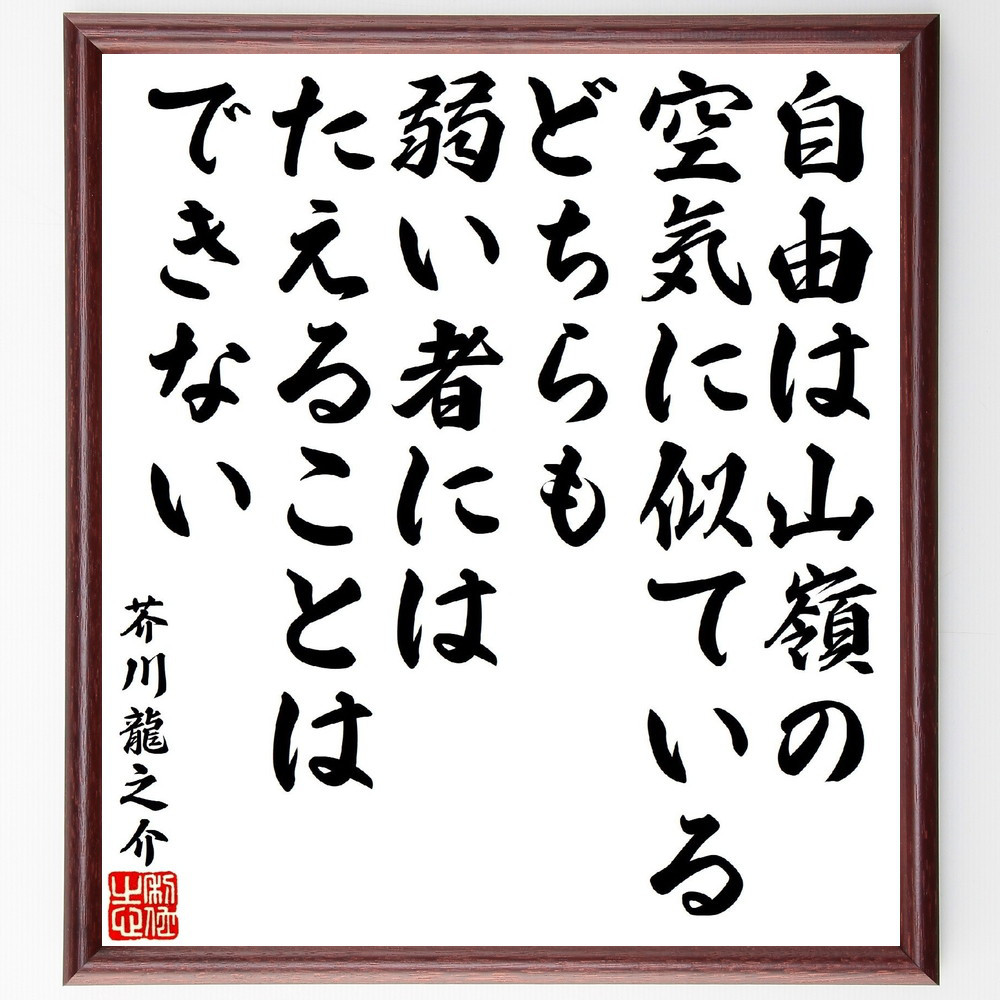 自由は山嶺の
空気に似ている
どちらも
弱い者には
たえることは
できない
芥川龍之介